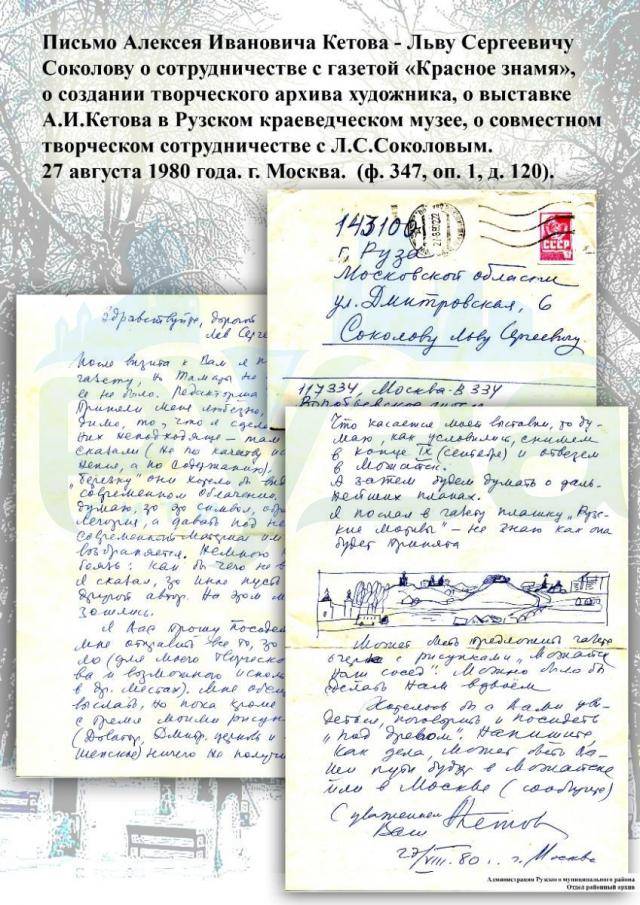 Письмо Алексея Ивановича Кетова - Льву Сергеевичу
Соколову о сотрудничестве с газетой «Красное знамя»,
о создании творческого архива художника, о выставке
А.И.Кетова в Рузском краеведческом музее, о совместном
творческом сотрудничестве с Л.С.Соколовым.
27 августа 1980 года. г. Москва. (ф. 347, оп. 1, д. 120).
143100
г. Руза
Московской области
ул. Дмитровская, 6
Соколову Льву Сергеевичу.
СССР
117334, Москва-В 334
Здравствуйте, дорогой
Лев Серге
После визита к Вам я п
газету, но Тамары не
се не было.
Приняли меня любезно,
димо, то, что я сдел
них неподходяще - там
сказали (не по качеству ис
нения, а по содержанию).
"Березку" они хотели бы вид
современном облачении.
думаю, это символ,
легория, а давать под не
современный материал им
возбраняется. Немного
боюсь: как бы чего не в
Я сказал, что мне пуст
другой автор. На этом м
зошлись.
Я Вас прошу посодей
мне отправить все то, что
ло (для моего творческо
ва и возможного исполь
в др. местах). Мне обещ
выслать, но пока кроме
с тремя моими рисун
(Доватор, Дмитр. церковь и
ничего не получи
Что касается моей выставки, то ду-
маю, как условились, снимем
в конце IX (сентября) и отвезем
в Можайск.
А затем будем думать о даль-
нейших планах.
Я послал в газету плашку "Руз-
ские мотивы" - не знаю как она
будет принята
Может быть предложить газете
очерк с рисунками "Можайск
наш сосед". Можно было бы
сделать нам вдвоём
Хотелось бы с Вами уви-
деться, поговорить и посидеть
"под древом". Напишите,
как дела, может быть Ва-
ши пути будут в Можайске
или в Москве (сообщите)
С уважением
Ваш Акетов
27/VIII.80 г. г. Москва
Администрация Рузского муниципального района
Отдел районный архив